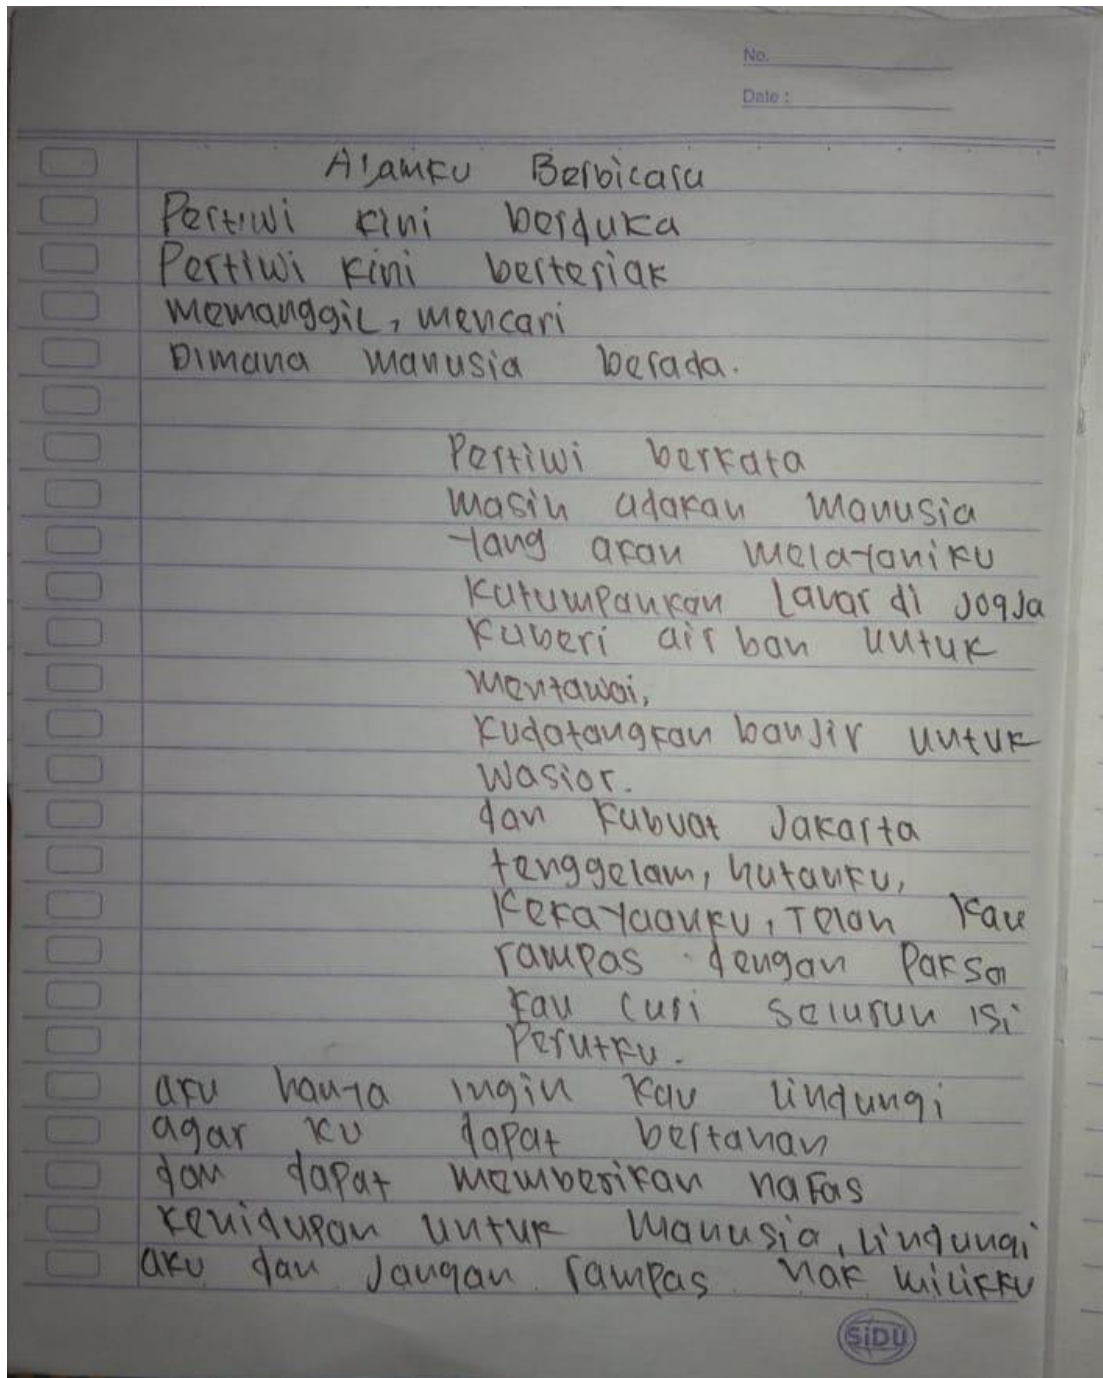 No.
Date :
Alamku Berbicara
Pertiwi kini berduka
Pertiwi kini berteriak
memanggil, mencari
Dimana manusia berada.
Pertiwi berkata
masih adakah manusia
yang akan melayaniku
Kutumpahkan Lahar di Jogja
kuberi air bah untuk
mentawai,
kudatangkan banjir untuk
wasior.
dan kubuat Jakarta
tenggelam, hutanku,
kekayaanku, Telah kau
rampas dengan Paksa
kau curi seluruh isi
Perutku.
aku hanya ingin kau lindungi
agar ku dapat bertahan
dan dapat memberikan nafas
kehidupan untuk manusia, lindungi
aku dan Jangan rampas hak milikku
SiDU